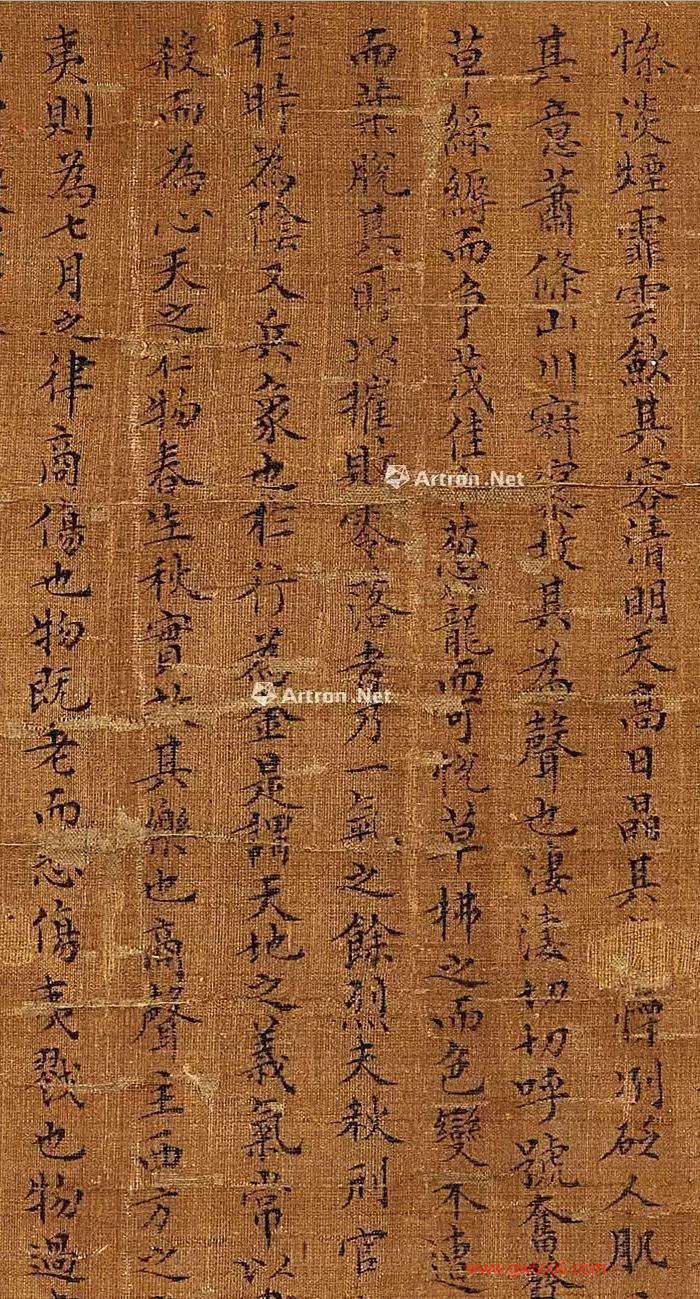 慘淡煙霏雲歛其容清明天高日晶其慄冽砭人肌
其意蕭條山川寂寥故其為聲也淒淒切切呼號奮
草綠縟而爭茂佳葱蘢而可悅草拂之而色變木遭
而葉脫其所以摧敗零落者乃一氣之餘烈夫秋刑官
於時為陰又兵象也於行為金是謂天地之義氣常以
殺而為心天之於物春生秋實故其樂也商聲主西方之
夷則為七月之律商傷也物既老而悲傷夷戮也物過
Artron.Net
Artron.Net